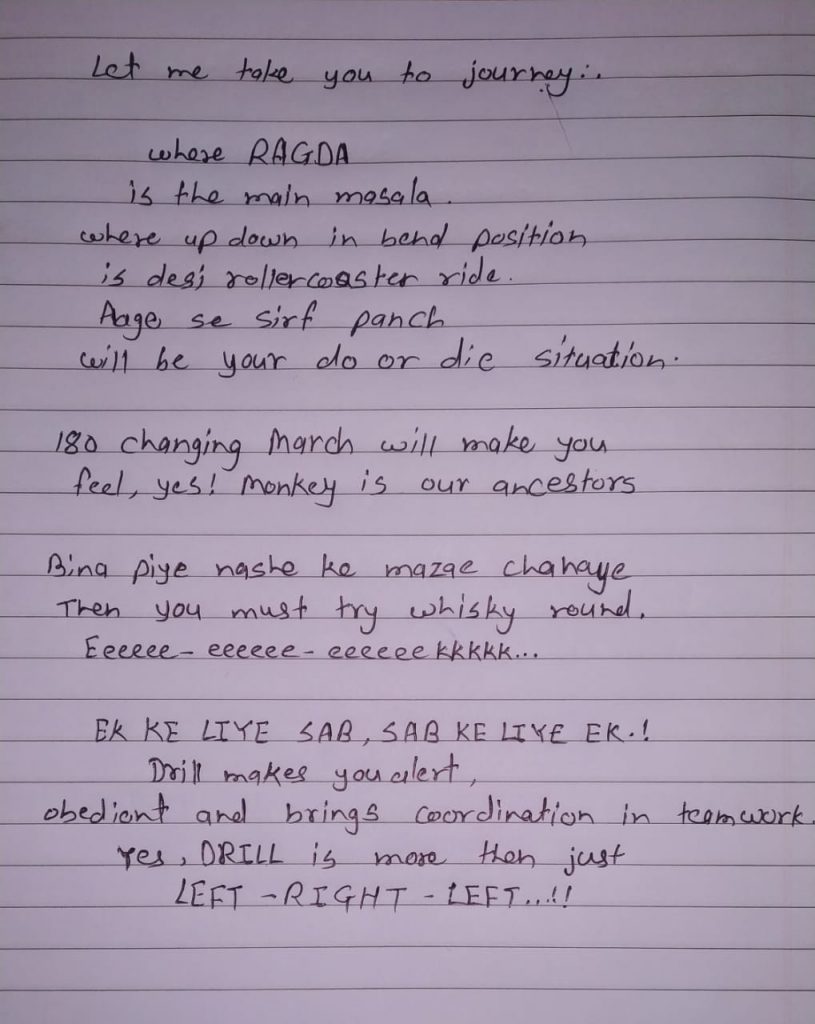 Let me take you to journey:.
where RAGDA
is the main masala.
where up down in bend position
is desi rollercoaster ride.
Aage se sirf panch
will be your do or die situation.
180 changing March will make you
feel, yes! Monkey is our ancestors
Bina piye nashe ke mazae chahaye
Then you must try whisky round.
Eeeeee-eeeeee-eeeeeekkkkk...
EK KE LIYE SAB, SAB KE LIYE EK.!
Drill makes you alert,
obedient and brings coordination in teamwork.
Yes, DRILL is more then just
LEFT-RIGHT-LEFT...!!